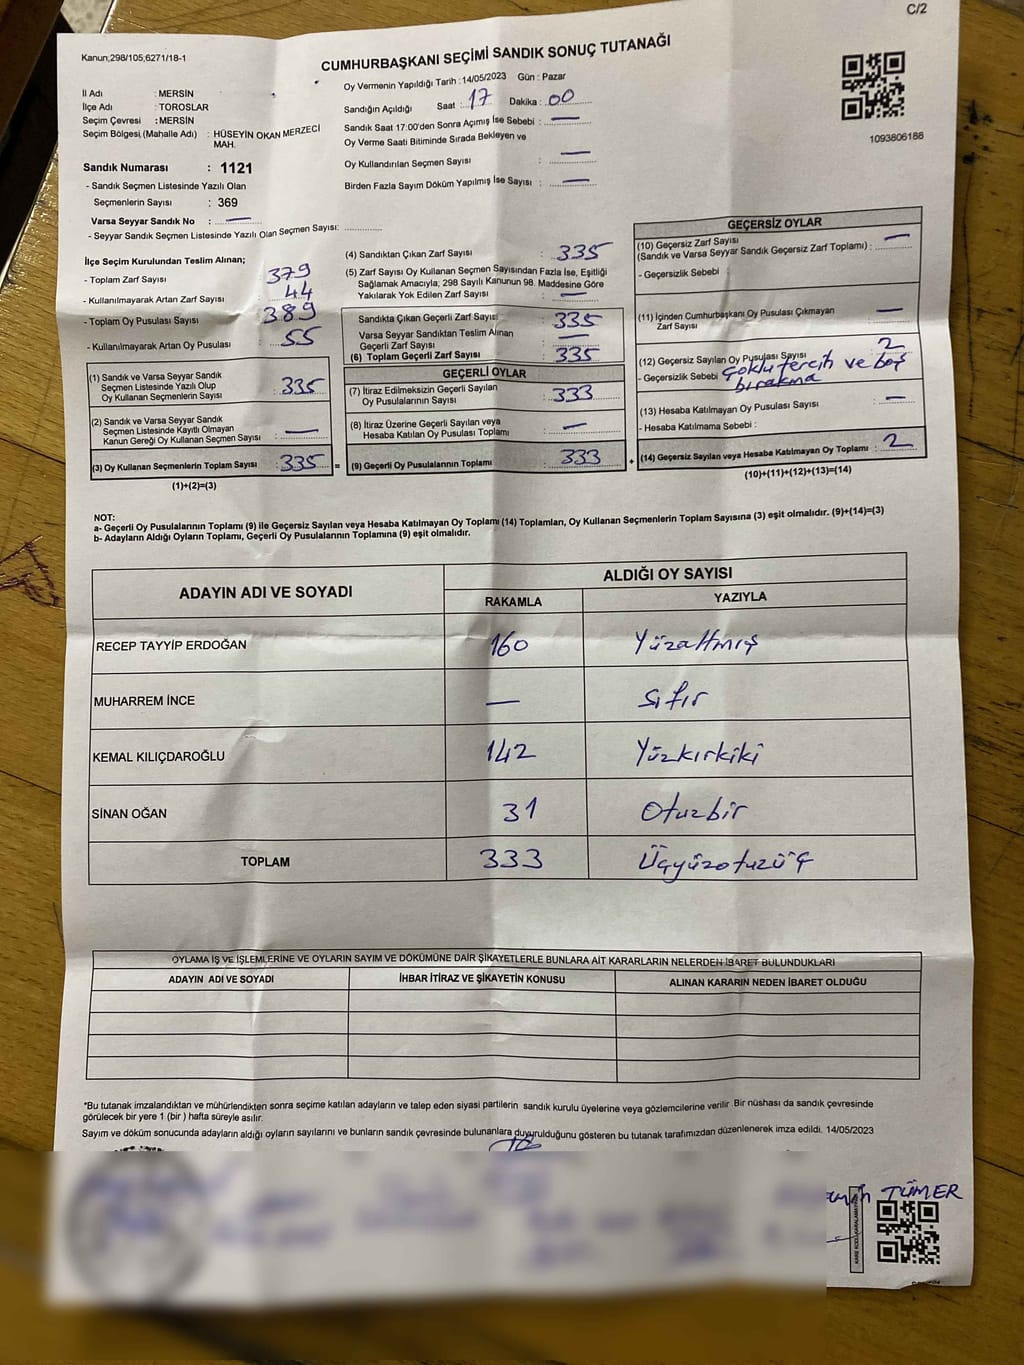 C/2
Kanun;298/105,6271/18-1
CUMHURBAŞKANI SEÇİMİ SANDIK SONUÇ TUTANAĞI
İl Adı : MERSİN
İlçe Adı : TOROSLAR
Seçim Çevresi : MERSİN
Seçim Bölgesi (Mahalle Adı) : HÜSEYİN OKAN MERZECİ MAH.
Sandık Numarası : 1121
- Sandık Seçmen Listesinde Yazılı Olan
Seçmenlerin Sayısı : 369
Varsa Seyyar Sandık No : —
- Seyyar Sandık Seçmen Listesinde Yazılı Olan Seçmen Sayısı:
Oy Vermenin Yapıldığı Tarih : 14/05/2023 Gün : Pazar
Sandığın Açıldığı Saat : 17 Dakika : 00
Sandık Saat 17:00'den Sonra Açımış İse Sebebi : —
Oy Verme Saati Bitiminde Sırada Bekleyen ve
Oy Kullandırılan Seçmen Sayısı : —
Birden Fazla Sayım Döküm Yapılmış İse Sayısı : —
1093806186
İlçe Seçim Kurulundan Teslim Alınan;
- Toplam Zarf Sayısı : 379
- Kullanılmayarak Artan Zarf Sayısı : 44
- Toplam Oy Pusulası Sayısı : 389
- Kullanılmayarak Artan Oy Pusulası : 55
(1) Sandık ve Varsa Seyyar Sandık
Seçmen Listesinde Yazılı Olup
Oy Kullanan Seçmenlerin Sayısı : 335
(2) Sandık ve Varsa Seyyar Sandık
Seçmen Listesinde Kayıtlı Olmayan
Kanun Gereği Oy Kullanan Seçmen Sayısı : —
(3) Oy Kullanan Seçmenlerin Toplam Sayısı : 335 =
(1)+(2)=(3)
(4) Sandıktan Çıkan Zarf Sayısı : 335
(5) Zarf Sayısı Oy Kullanan Seçmen Sayısından Fazla İse, Eşitliği
Sağlamak Amacıyla; 298 Sayılı Kanunun 98. Maddesine Göre
Yakılarak Yok Edilen Zarf Sayısı : —
Sandıkta Çıkan Geçerli Zarf Sayısı : 335
Varsa Seyyar Sandıktan Teslim Alınan
Geçerli Zarf Sayısı : —
(6) Toplam Geçerli Zarf Sayısı : 335
GEÇERLİ OYLAR
(7) İtiraz Edilmeksizin Geçerli Sayılan
Oy Pusulalarının Sayısı : 333
(8) İtiraz Üzerine Geçerli Sayılan veya
Hesaba Katılan Oy Pusulası Toplamı : —
(9) Geçerli Oy Pusulalarının Toplamı : 333 +
GEÇERSİZ OYLAR
(10) Geçersiz Zarf Sayısı
(Sandık ve Varsa Seyyar Sandık Geçersiz Zarf Toplamı) : —
- Geçersizlik Sebebi :
(11) İçinden Cumhurbaşkanı Oy Pusulası Çıkmayan
Zarf Sayısı : —
(12) Geçersiz Sayılan Oy Pusulası Sayısı : 2
- Geçersizlik Sebebi : Çoklu tercih ve boş
bırakma
(13) Hesaba Katılmayan Oy Pusulası Sayısı : —
- Hesaba Katılmama Sebebi :
(14) Geçersiz Sayılan veya Hesaba Katılmayan Oy Toplamı : 2
(10)+(11)+(12)+(13)=(14)
NOT:
a- Geçerli Oy Pusulalarının Toplamı (9) ile Geçersiz Sayılan veya Hesaba Katılmayan Oy Toplamı (14) Toplamları, Oy Kullanan Seçmenlerin Toplam Sayısına (3) eşit olmalıdır. (9)+(14)=(3)
b- Adayların Aldığı Oyların Toplamı, Geçerli Oy Pusulalarının Toplamına (9) eşit olmalıdır.
ADAYIN ADI VE SOYADI ALDIĞI OY SAYISI
RAKAMLA YAZIYLA
RECEP TAYYİP ERDOĞAN 160 Yüzaltmış
MUHARREM İNCE — Sıfır
KEMAL KILIÇDAROĞLU 142 Yüzkırkiki
SİNAN OĞAN 31 Otuzbir
TOPLAM 333 Üçyüzotuzüç
OYLAMA İŞ VE İŞLEMLERİNE VE OYLARIN SAYIM VE DÖKÜMÜNE DAİR ŞİKAYETLERLE BUNLARA AİT KARARLARIN NELERDEN İBARET BULUNDUKLARI
ADAYIN ADI VE SOYADI İHBAR İTİRAZ VE ŞİKAYETİN KONUSU ALINAN KARARIN NEDEN İBARET OLDUĞU
*Bu tutanak imzalandıktan ve mühürlendikten sonra seçime katılan adayların ve talep eden siyasi partilerin sandık kurulu üyelerine veya gözlemcilerine verilir. Bir nüshası da sandık çevresinde
görülecek bir yere 1 (bir ) hafta süreyle asılır.
Sayım ve döküm sonucunda adayların aldığı oyların sayılarını ve bunların sandık çevresinde bulunanlara duyurulduğunu gösteren bu tutanak tarafımızdan düzenlenerek imza edildi. 14/05/2023
TÜMER